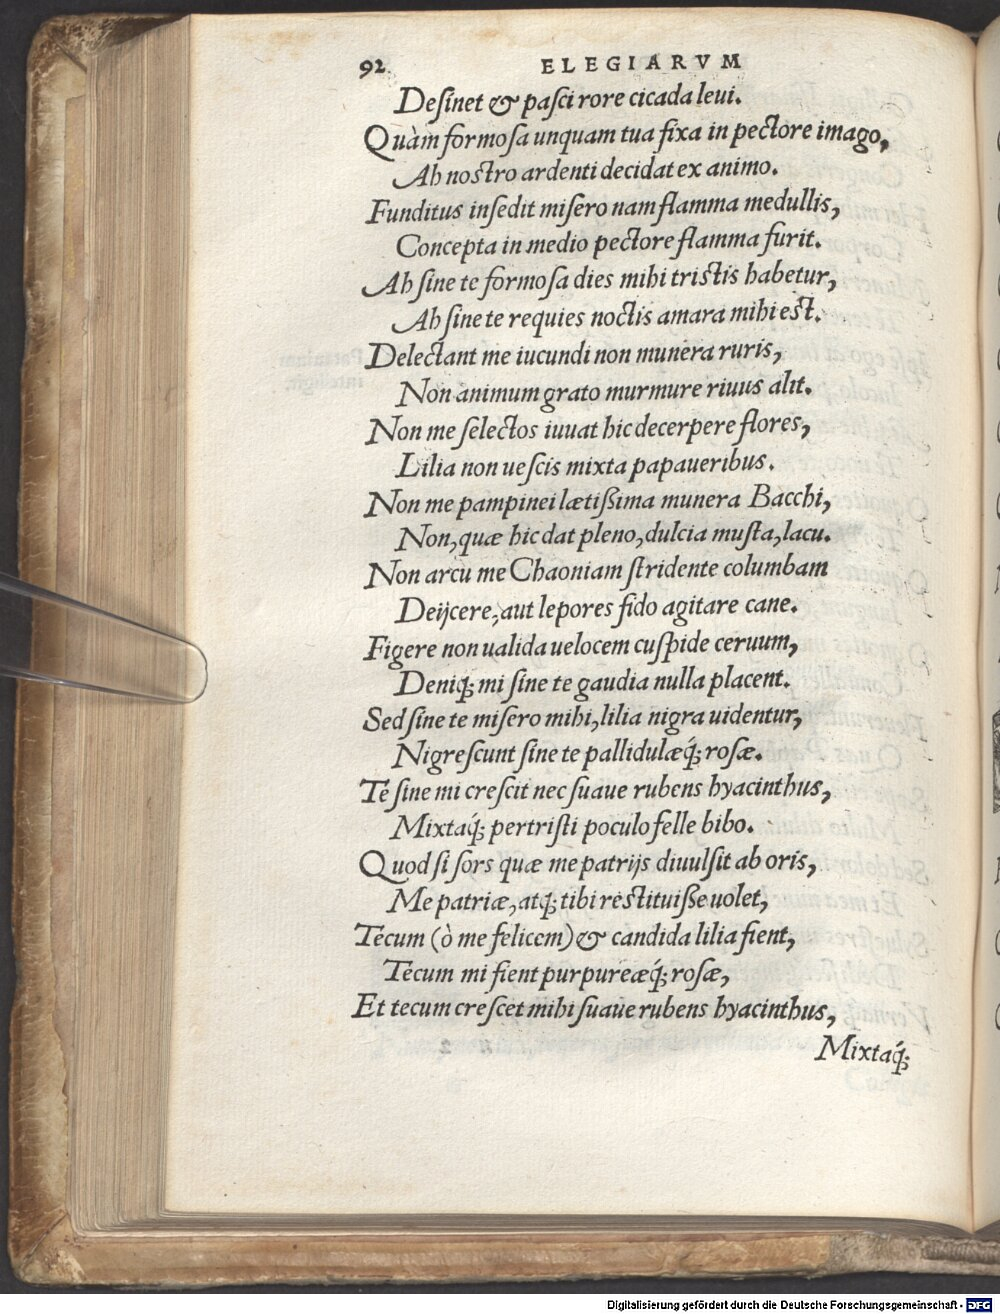 92 ELEGIARVM
Deſinet & paſci rore cicada leui.
Quàm formoſa unquam tua fixa in pectore imago,
Ah noſtro ardenti decidat ex animo.
Funditus inſedit miſero nam flamma medullis,
Concepta in medio pectore flamma furit.
Ah ſine te formoſa dies mihi triſtis habetur,
Ah ſine te requies noctis amara mihi eſt.
Delectant me iucundi non munera ruris,
Non animum grato murmure riuus alit.
Non me ſelectos iuuat hic decerpere flores,
Lilia non ueſcis mixta papaueribus.
Non me pampinei lætißima munera Bacchi,
Non, quæ hic dat pleno, dulcia muſta, lacu.
Non arcu me Chaoniam ſtridente columbam
Deijcere, aut lepores fido agitare cane.
Figere non ualida uelocem cuſpide ceruum,
Deniq́; mi ſine te gaudia nulla placent.
Sed ſine te miſero mihi, lilia nigra uidentur,
Nigreſcunt ſine te pallidulæq́; roſæ.
Te ſine mi creſcit nec ſuaue rubens hyacinthus,
Mixtaq́; pertriſti poculo felle bibo.
Quod ſi ſors quæ me patrijs diuulſit ab oris,
Me patriæ, atq; tibi reſtituiße uolet,
Tecum (ò me felicem) & candida lilia fient,
Tecum mi fient purpureæq́; roſæ,
Et tecum creſcet mihi ſuaue rubens hyacinthus,
Mixtaq́;
Digitalisierung gefördert durch die Deutsche Forschungsgemeinschaft - DFG